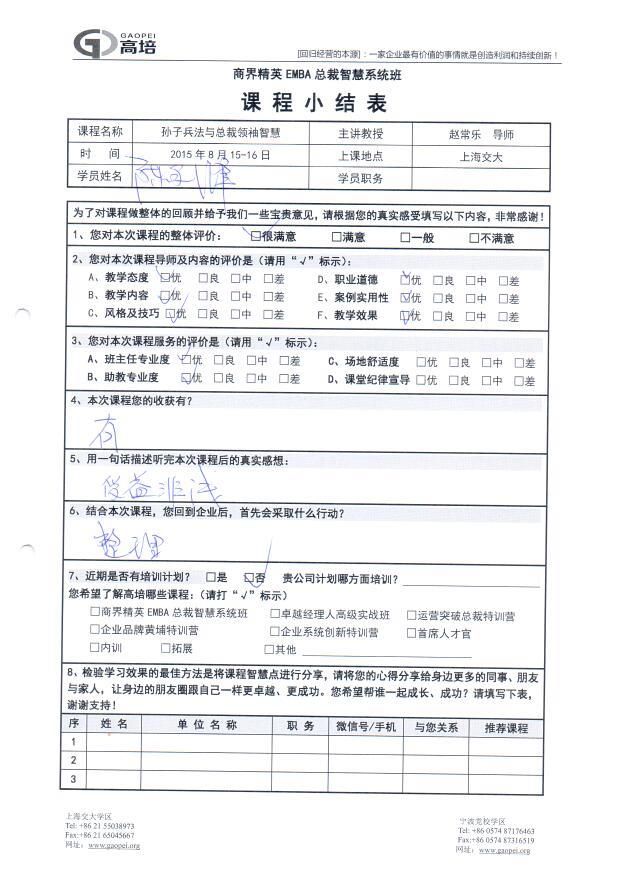 GAOPEI
高培
[回归经营的本源]：一家企业最有价值的事情就是创造利润和持续创新！
商界精英 EMBA 总裁智慧系统班
课 程 小 结 表
课程名称 孙子兵法与总裁领袖智慧 主讲教授 赵常乐 导师
时 间 2015 年 8 月 15-16 日 上课地点 上海交大
学员姓名 学员职务
为了对课程做整体的回顾并给予我们一些宝贵意见，请根据您的真实感受填写以下内容，非常感谢！
1、您对本次课程的整体评价： ☑很满意 □满意 □一般 □不满意
2、您对本次课程导师及内容的评价是（请用“√”标示）：
A、教学态度 ☑优 □良 □中 □差 D、职业道德 ☑优 □良 □中 □差
B、教学内容 ☑优 □良 □中 □差 E、案例实用性 ☑优 □良 □中 □差
C、风格及技巧 ☑优 □良 □中 □差 F、教学效果 ☑优 □良 □中 □差
3、您对本次课程服务的评价是（请用“√”标示）：
A、班主任专业度 ☑优 □良 □中 □差 C、场地舒适度 □优 □良 □中 □差
B、助教专业度 ☑优 □良 □中 □差 D、课堂纪律宣导 □优 □良 □中 □差
4、本次课程您的收获有？
有
5、用一句话描述听完本次课程后的真实感想：
受益非浅
6、结合本次课程，您回到企业后，首先会采取什么行动？
整理
7、近期是否有培训计划？ □是 ☑否 贵公司计划哪方面培训？
您希望了解高培哪些课程：（请打“√”标示）
□商界精英 EMBA 总裁智慧系统班 □卓越经理人高级实战班 □运营突破总裁特训营
□企业品牌黄埔特训营 □企业系统创新特训营 □首席人才官
□内训 □拓展 □其他
8、检验学习效果的最佳方法是将课程智慧点进行分享，请将您的心得分享给身边更多的同事、朋友
与家人，让身边的朋友圈跟自己一样更卓越、更成功。您希望帮谁一起成长、成功？请填写下表，
谢谢支持！
序 姓 名 单 位 名 称 职 务 微信号/手机 与您关系 推荐课程
1
2
3
上海交大学区 宁波党校学区
Tel: +86 21 55038973 Tel: +86 0574 87176463
Fax:+86 21 65045667 Fax:+86 0574 87316519
网址：www.gaopei.org 网址：www.gaopei.org